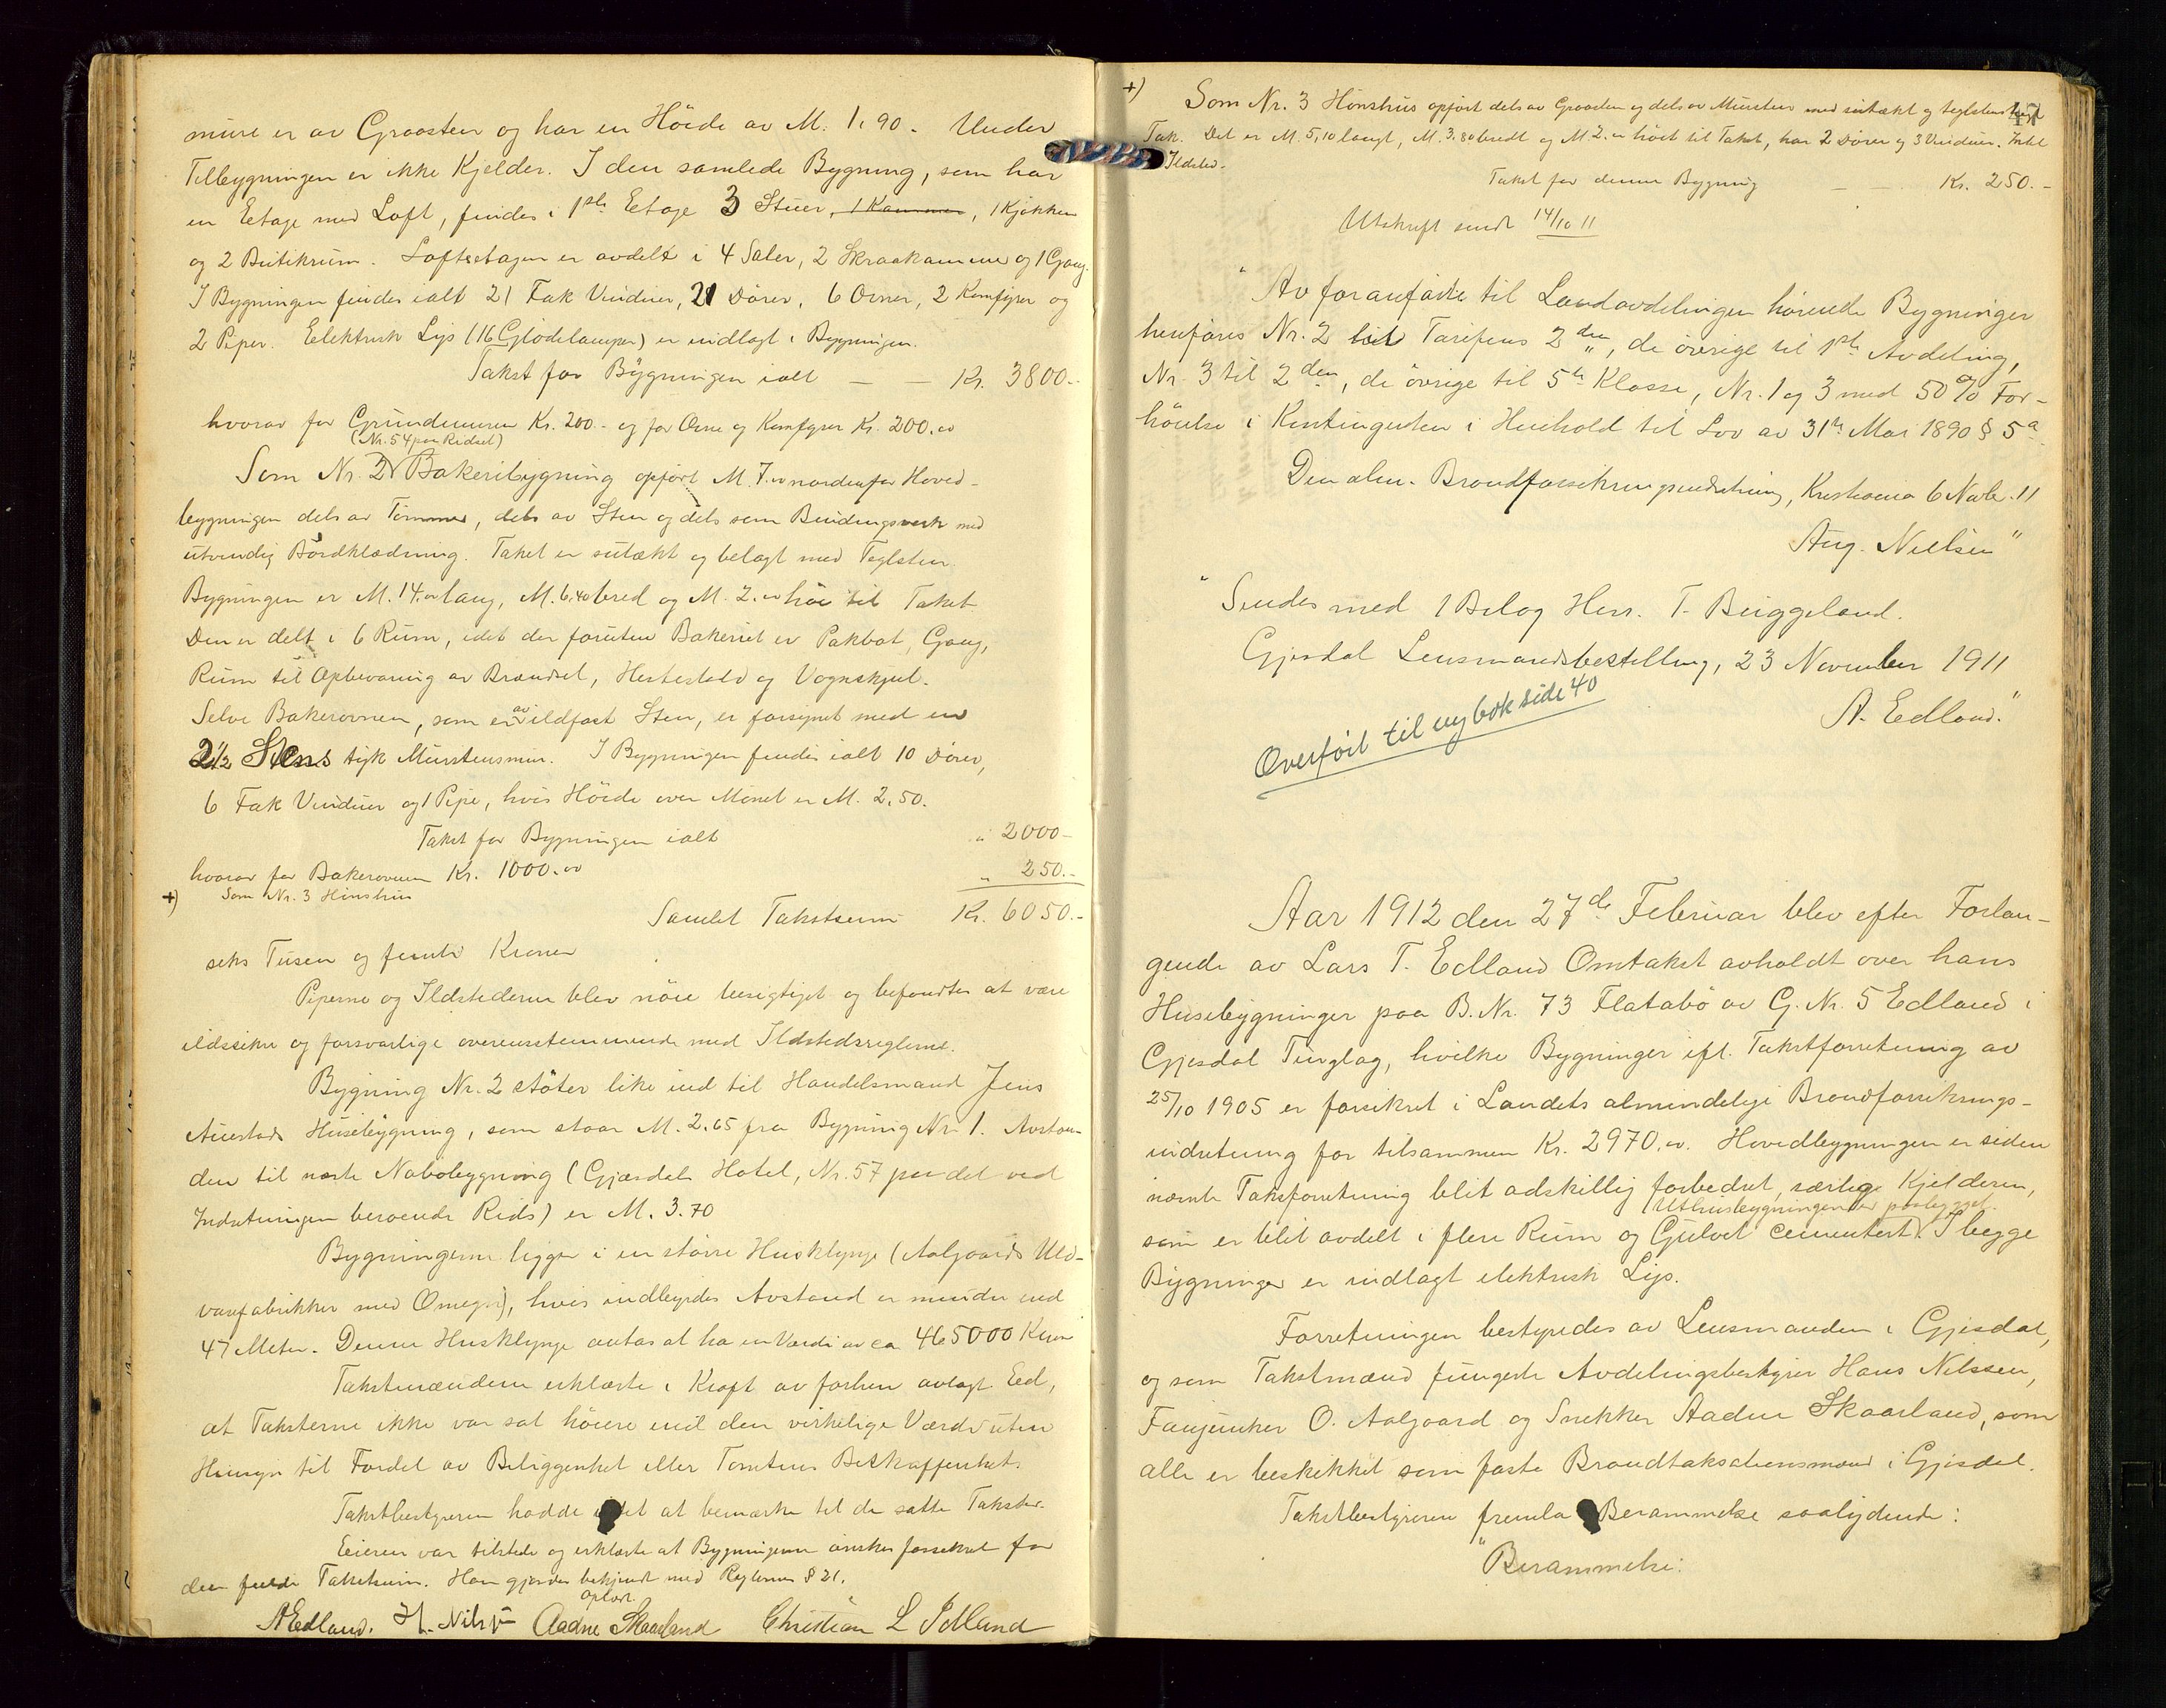 mure er av Graasten og har en Höide av M. 1,90. Under
Tilbygningen er ikke Kjelder. I den samlede Bygning, som har
en Etage med Loft, findes i 1ste Etage 3 Stuer, 1 Kammer, 1 Kjökken
og 2 Butikrum. Loftsetagen er avdelt i 4 Saler, 2 Skraakammer og 1 Gang.
I Bygningen findes ialt 21 Fak Vinduer, 21 Dörer, 6 Ovner, 2 Komfyrer og
2 Piper. Elektrisk Lys (16 Glödelamper) er indlagt i Bygningen.
Takst for Bygningen ialt — — Kr. 3800.-
hvorav for Grundmuren Kr. 200.- og for Ovne og Komfyrer Kr. 200.00
(Nr. 54 paa Ridset)
Som Nr. 2 Bakeribygning opfört M. 7.00 nordenfor Hoved-
bygningen dels av Tömmer, dels av Sten og dels som Bindingsverk med
utvendig Bordklædning. Taket er sutækt og belagt med Teglsten.
Bygningen er M. 14.00 lang, M. 6,40 bred og M. 2.00 höi til Taket.
Den er delt i 6 Rum, idet der foruten Bakeriet er Pakbod, Gang,
Rum til Opbevaring av Brændsel, Hestestald og Vognskjul.
Selve Bakerovnen, som er av ildfast Sten, er forsynet med en
2½ Stens tyk Murstensmur. I Bygningen findes ialt 10 Dörer,
6 Fak Vinduer og 1 Pipe, hvis Höide over Mönet er M. 2,50.
Takst for Bygningen ialt " 2000-
hvorav for Bakerovnen Kr. 1000.00 " 250.-
+) Som Nr. 3 Hönshus
Samlet Takstsum Kr. 6050.-
seks Tusen og femti Kroner
Piperne og Ildstederne blev nöie besigtiget og befandtes at være
ildssikre og forsvarlige overensstemmende med Ildstedsreglerne.
Bygning Nr. 2 stöter like ind til Handelsmand Jens
Auestads Husebygning, som staar M. 2.65 fra Bygning Nr. 1. Avstan-
den til næste Nabobygning (Gjæsdals Hotel, Nr. 57 paa det ved
Indretningen beroende Rids) er M. 3.70
Bygningerne ligger i en större Husklynge (Aalgaards Uld-
varefabrikker med Omegn), hvis indbyrdes Avstand er mindre end
47 Meter. Denne Husklynge antas at ha en Værdi av ca 465000 Kroner
Takstmændene erklærte i Kraft av forhen avlagt Eed,
at Taksterne ikke var sat höiere end den virkelige Værdi uten
Hensyn til Fordel av Beliggenhet eller Tomtens Beskaffenhet.
Takstbestyreren hadde intet at bemærke til de satte Takster.
Eieren var tilstede og erklærte at Bygningerne önskes forsikret for
den fulde Takstsum. Han gjordes bekjendt med Reglernes § 21.
Oplæst.
A Edland. H. Nilsen Aadne Skaarland Christian L Edland
+) Som Nr. 3 Hönshus opfört dels av Graasten og dels av Mursten med sutækt og teglstenslagt
Tak. Det er M. 5,10 langt, M. 3.80 bredt og M. 2.00 höit til Taket, har 2 Dörer og 3 Vinduer. Intet
Ildsted.
Takst for denne Bygning — — Kr. 250.-
Utskrift sendt 14/10 11
"Av foranförte til Landavdelingen hörende Bygninger
henföres Nr. 2 til Tarifens 2den, de övrige til 1ste Avdeling,
Nr. 3 til 2den, de övrige til 5te Klasse, Nr. 1 og 3 med 50% For-
höielse i Kontingenten i Henhold til Lov av 31te Mai 1890 § 5a.
Den alm. Brandforsikringsindretning, Kristiania 6 Novbr. 11
Aug. Nielsen"
"Sendes med 1 Bilag Herr. T. Buggeland.
Gjesdal Lensmandsbestilling, 23 November 1911
A. Edland."
Overfört til ny bok side 40
Aar 1912 den 27de Februar blev efter Forlan-
gende av Lars T. Edland Omtakst avholdt over hans
Husebygninger paa B. Nr. 73 Flatabö av G. Nr. 5 Edland i
Gjesdal Tinglag, hvilke Bygninger ifl. Takstforretning av
25/10 1905 er forsikret i Landets almindelige Brandforsikrings-
indretning for tilsammen Kr. 2970.00. Hovedbygningen er siden
nævnte Takstforretning blit adskillig forbedret, særlig Kjelderen,
(Uthusbygningen er paabygget.
som er blit avdelt i flere Rum og Gulvet cementert. I begge
Bygninger er indlagt elektrisk Lys.
Forretningen bestyredes av Lensmanden i Gjesdal,
og som Takstmænd fungerte Avdelingsbestyrer Hans Nilssen,
Fanejunker O. Aalgaard og Snekker Aadne Skaarland, som
alle er beskikket som faste Brandtakstionsmænd i Gjesdal.
Takstbestyreren fremla Berammelse saalydende:
"Berammelse: